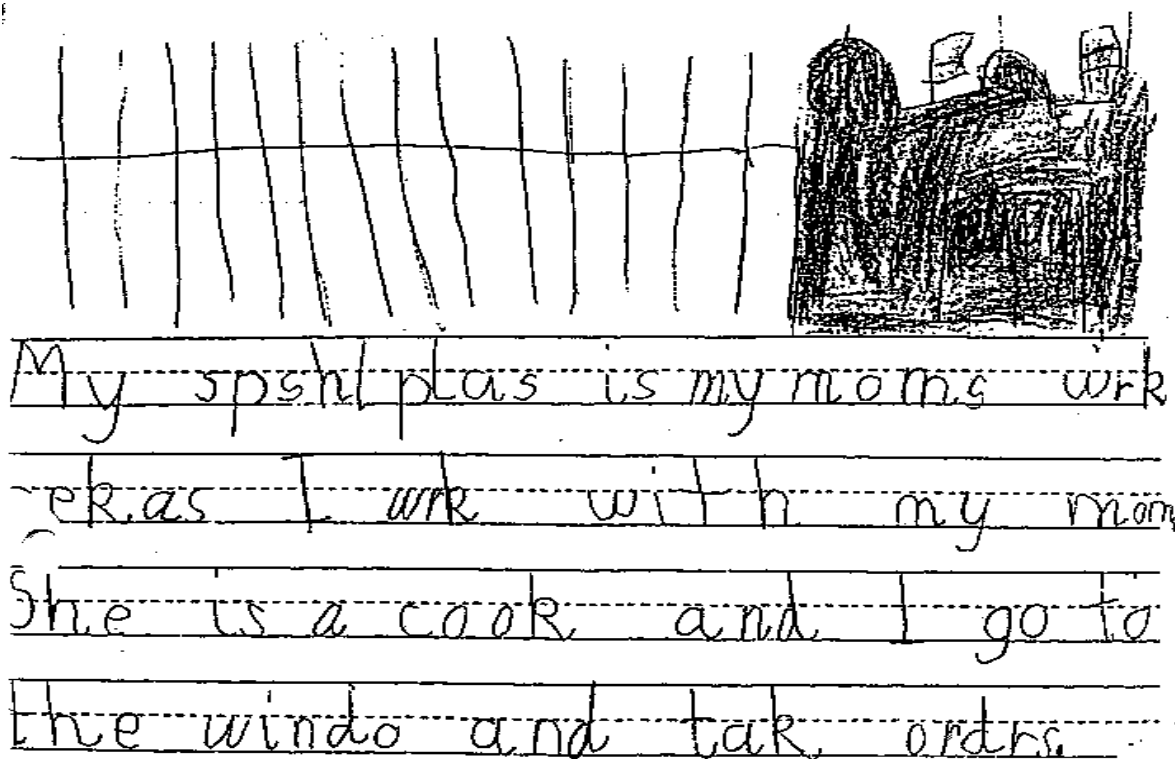 My spshl plas is my moms wrk
ekas I wrk with my mom
She is a cook and I go to
the windo and tak ordrs.